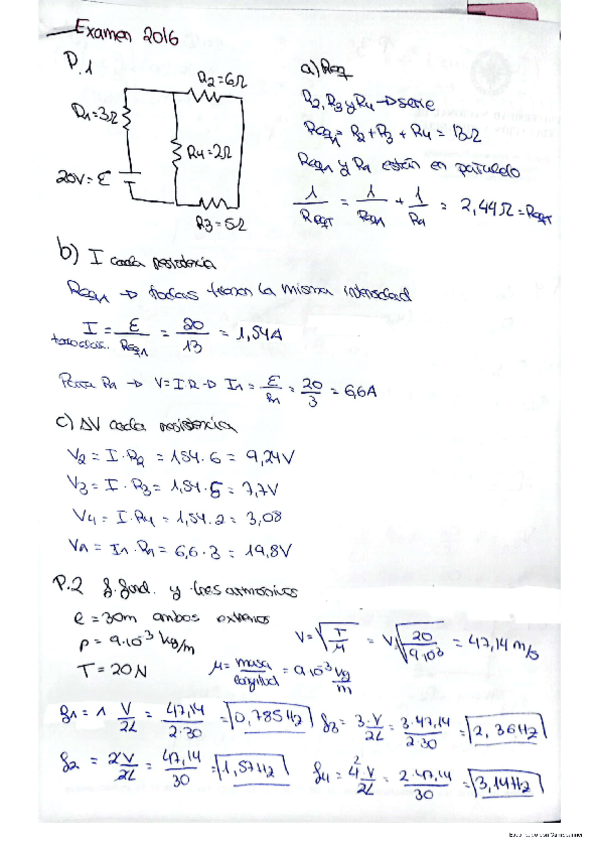 Examen 2016
P.1
R2=6Ω
R1=3Ω
R4=2Ω
20V=ε
R3=5Ω
a) Req
R2, R3 y R4 → serie
Req1 = R2 + R3 + R4 = 13Ω
Req1 y R1 están en paralelo
1/ReqT = 1/Req1 + 1/R1 = 2,44Ω = ReqT
b) I cada resistencia
Req1 → todas tienen la misma intensidad
I = ε/Req1 = 20/13 = 1,54A
Para R1 → V=I·R → I1 = ε/R1 = 20/3 = 6,6A
c) ΔV cada resistencia
V2 = I·R2 = 1,54·6 = 9,24V
V3 = I·R3 = 1,54·5 = 7,7V
V4 = I·R4 = 1,54·2 = 3,08
V1 = I1·R1 = 6,6·3 = 19,8V
P.2 f. fund. y tres armonicos
l = 30m ambos extremos
ρ = 9·10⁻³ kg/m
T = 20N
V = √(T/μ) = √(20/9·10⁻³) = 47,14 m/s
μ = masa/longitud = 9·10⁻³ kg/m
f1 = 1 V/2L = 47,14/2·30 = 0,785Hz
f3 = 3·V/2L = 3·47,14/2·30 = 2,36Hz
f2 = 2V/2L = 47,14/30 = 1,57Hz
f4 = 4·V/2L = 2·47,14/30 = 3,14Hz